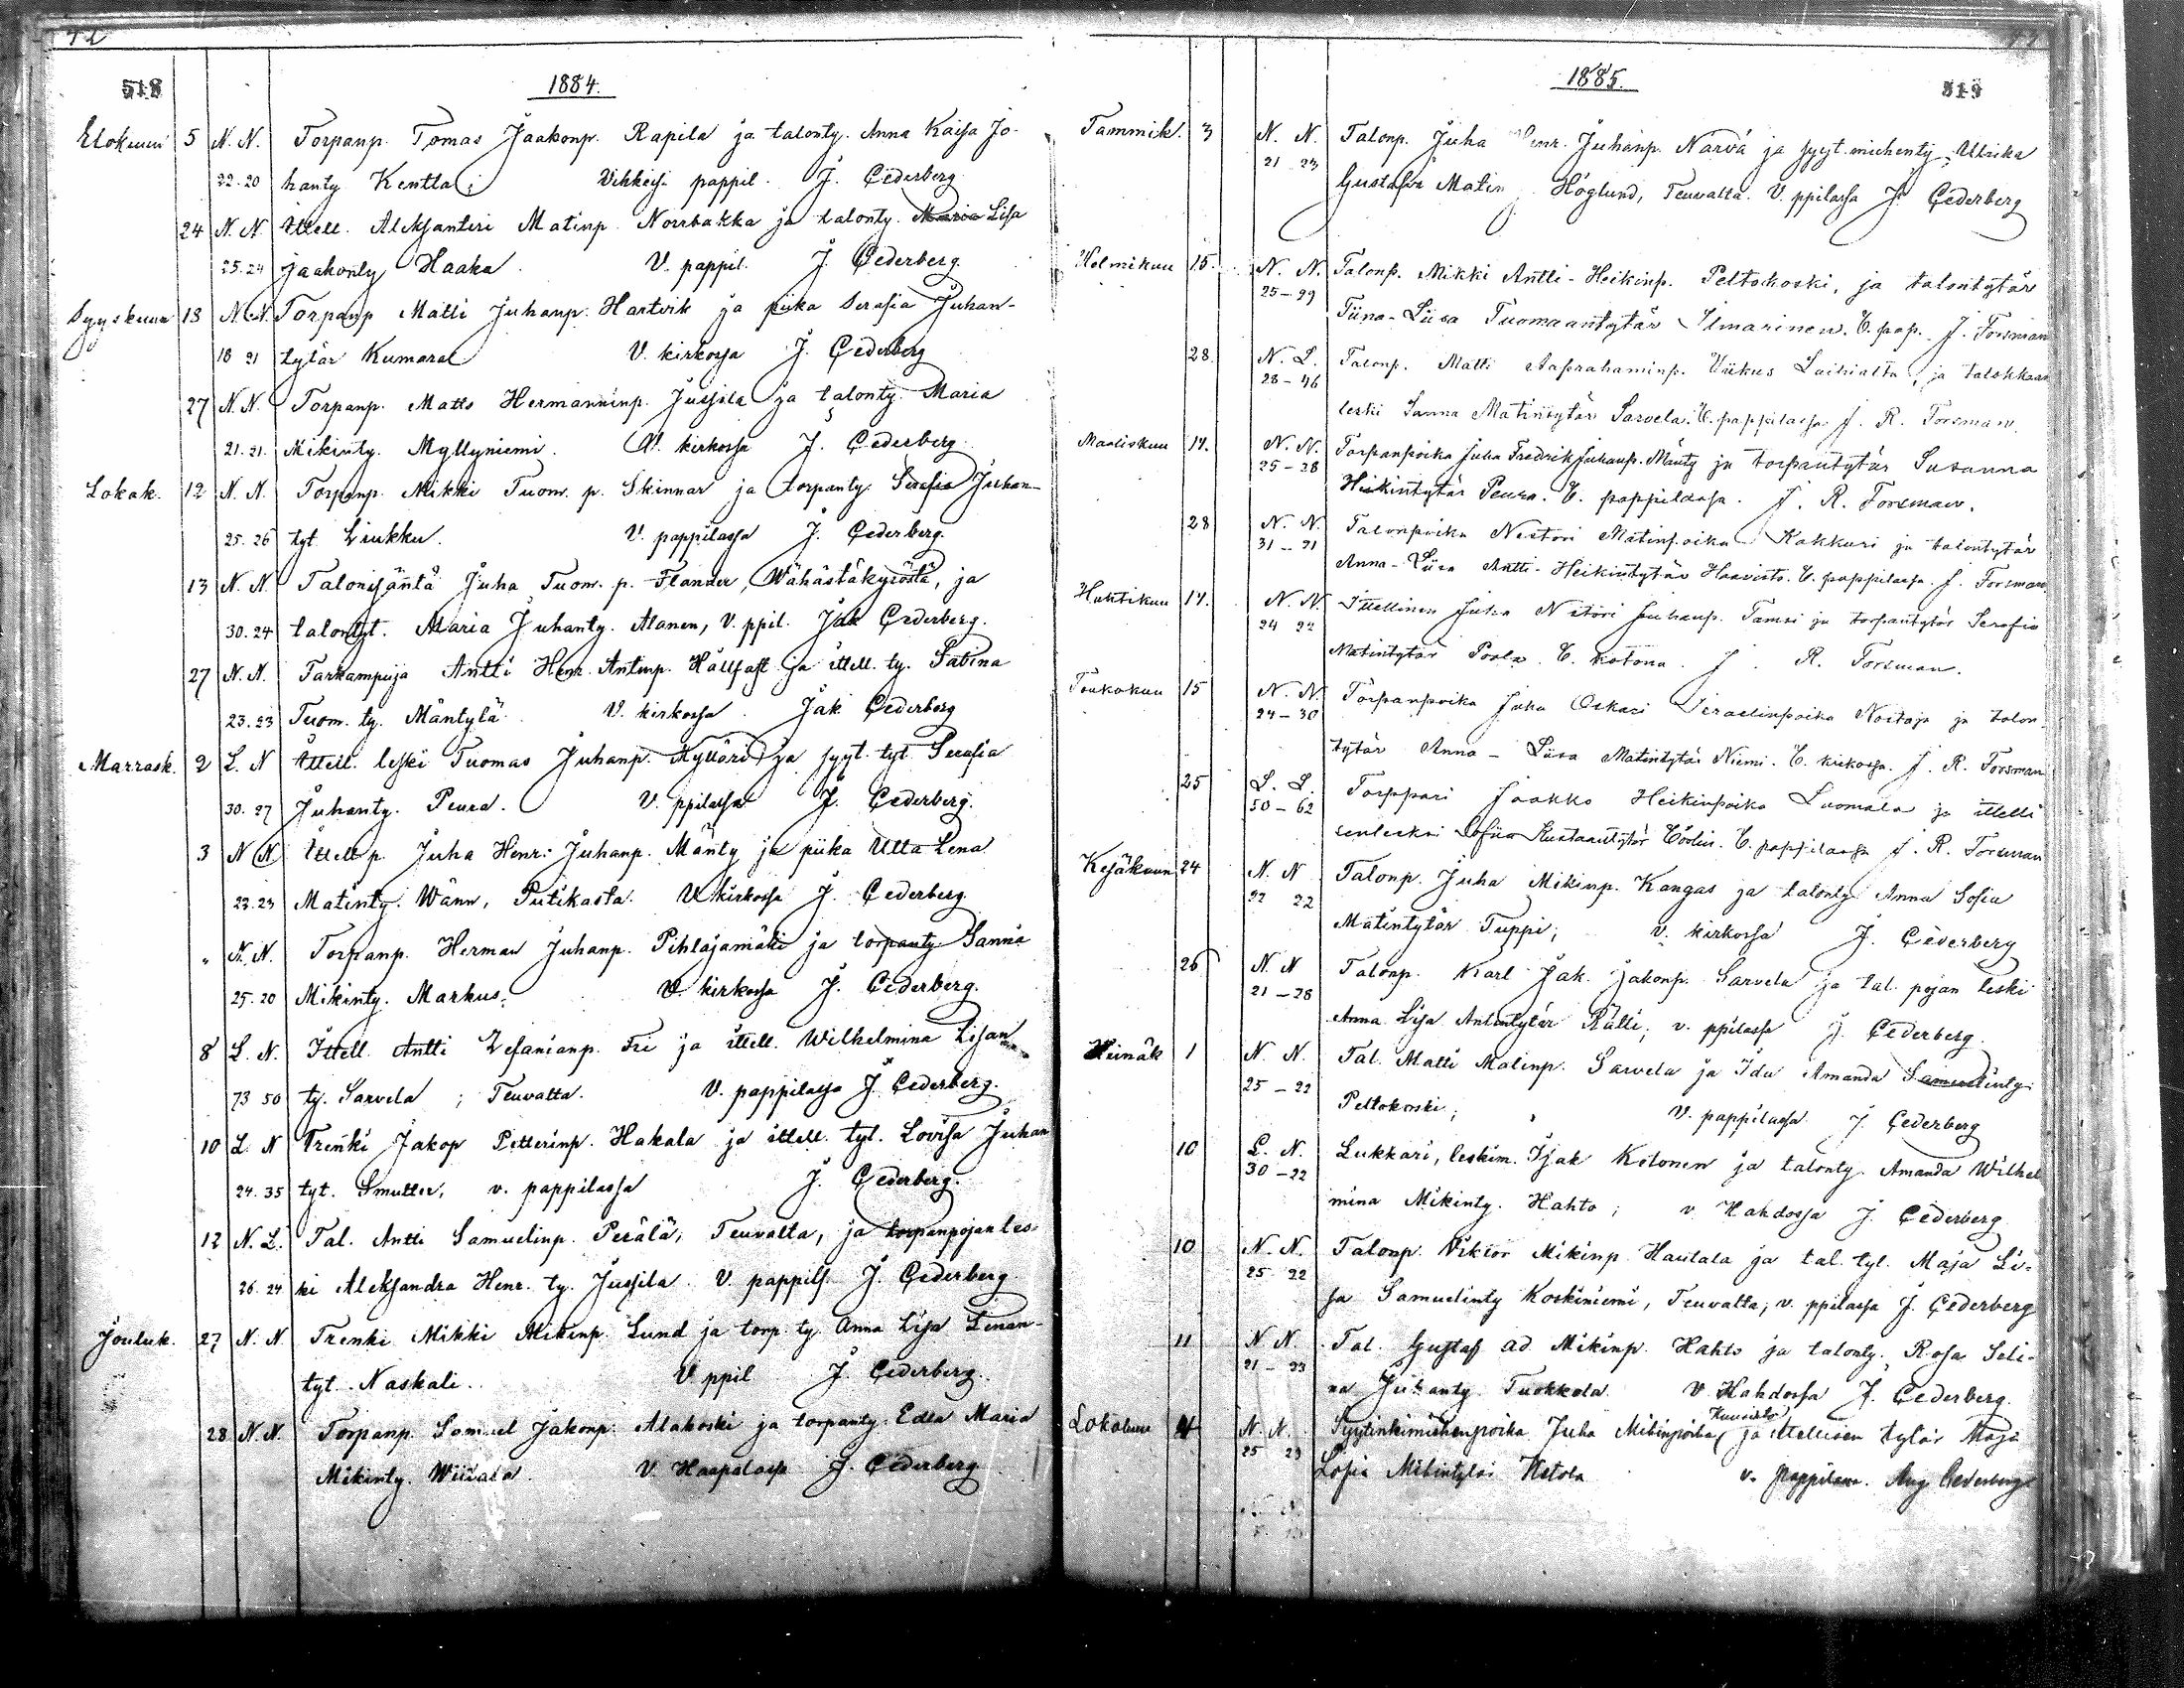 518
1884.
Elokuun 5 N. N. Torpanp. Tomas Jaakonp. Rapila ja talonty. Anna Kaisa Jo-
22.20 hanty Kentta; Vihkeisi pappil. J. Cederberg
24 N. N. Ittell. Aleksanteri Matinp. Norrbakka ja talonty. Maria Lisa
25.24 Jaakonty Haaka. V. pappil. J. Cederberg.
Syyskuun 13 N. N. Torpanp Matti Juhanp. Hartvik ja piika Serafia Juhan-
18 21 tytär Kumarat V. kirkossa J. Cederberg
27 N. N. Torpanp. Matts Hermanninp. Jussila ja talonty. Maria
21.21. Mikinty. Myllyniemi. V. kirkossa J. Cederberg.
Lokak. 12 N. N. Torpanp. Mikki Tuom. p. Skinnar ja torpanty. Serafia Juhan-
25.26 tyt. Liukku. V. pappilassa J. Cederberg.
13 N. N. Talonisäntä Juha Tuom. p. Flander, Wähästäkyröstä, ja
30.24 talontyt. Maria Juhanty. Alanen, V. ppil. Jak Cederberg.
27 N. N. Tarkampuja Antti Henr. Antinp. Hållfast ja ittell. ty. Sabina
23.23 Tuom. ty. Mäntylä. V. kirkossa. Jak Cederberg
Marrask. 2 L. N Ittell. leski Tuomas Juhanp. Kyttäri ja syyt. tyt. Serafia
30.27 Juhanty. Peura. V. ppilassa J. Cederberg.
3 N N Ittell p. Juha Henr. Juhanp. Mänty ja piika Ulla Lena
22.23 Matinty. Wänn, Putikasta. V. kirkossa J. Cederberg.
" N. N. Torpanp. Herman Juhanp. Pihlajamäki ja torpanty. Sanna
25.20 Mikinty. Markus. V. kirkossa J. Cederberg.
8 L. N. Ittell. Antti Zefanianp. Fri ja ittell. Wilhelmina Lisan
73 50 ty. Sarvela; Teuvalta. V. pappilassa J. Cederberg.
10 L. N Trenki Jakop Petterinp. Hakala ja ittell. tyt. Lovisa Juhan
24.35 tyt. Smutter, v. pappilassa J. Cederberg.
12 N. L. Tal. Antti Samuelinp. Perälä, Teuvalta, ja torpanpojan les-
26.24 ki Aleksandra Henr. ty. Jussila. V. pappils. J. Cederberg
Jouluk. 27 N. N Trenki Mikki Mikinp. Lund ja torp. ty. Anna Lisa Linan-
tyt. Naskali. V ppil J. Cederberg.
28 N. N. Torpanp. Samuel Jakonp. Alakoski ja torpanty. Edla Maria
Mikinty. Wiitala. V. Haapalassa J. Cederberg
1885.
519
Tammik. 3 N. N. Talonp. Juha Henr. Juhanp. Narvá ja syyt.miehenty. Ulrika
21 23 Gustafva Matin Höglund, Teuvalta. V. ppilassa J. Cederberg
Helmikuu 15. N. N. Talonp. Mikki Antti-Heikinp. Peltokoski, ja talontytär
25-29 Tiina-Liisa Tuomaantytär Ilmarinen. V. pap. J. Forsman
28. N. L. Talonp. Matti Aaprahaminp. Viikus Laihialta, ja talokkaan
28-46 leski Sanna Matintytär Sarvela. V. pappilassa J. R. Forsman.
Maaliskuu 14. N. N. Torpanpoika Juha Fredrik Juhanp. Mänty ja torpantytär Susanna
25-28 Heikintytär Peura. V. pappilassa. J. R. Forsman.
28 N. N. Talonpoika Nestori Matinpoika Kakkuri ja talontytär
31-21 Anna-Liisa Antti-Heikintytär Haavisto. V. pappilassa. J. Forsman.
Huhtikuu 14. N. N. Ittellinen Juha Nestori Juhanp. Tamsi ja torpantytär Serafia
24 22 Matintytär Poola. V. kotona. J. R. Forsman.
Toukokuu 15 N. N. Torpanpoika Juha Oskari Israelinpoika Nostaja ja talon-
24-30 tytär Anna-Liisa Matintytär Niemi. V. kirkossa. J. R. Forsman
25 L. L. Torppari Jaakko Heikinpoika Luomala ja ittelli
50-62 senleski Sofiia Kustaantytär V. pappilassa J. R. Forsman
Kesäkuun 24 N. N Talonp. Juha Mikinp. Kangas ja talonty Anna Sofia
22 22 Matintytär Tuppi; v. kirkossa J. Cederberg
26 N. N Talonp. Karl Jak. Jakonp. Sarvela ja tal. pojan leski
21-28 Anna Lisa Antintytär Rätti; v. ppilassa J. Cederberg.
Heinäk 1 N. N. Tal. Matti Matinp. Sarvela ja Ida Amanda Samuelinty.
25-22 Peltokoski; V. pappilassa J. Cederberg
10 L. N. Lukkari, leskim. Isak Ketonen ja talonty. Amanda Wilhel
30-22 mina Mikinty. Hahto; v. Hahdossa J. Cederberg
10 N. N. Talonp. Viktor Mikinp Hautala ja tal. tyt. Maja Li-
25 22 sa Samuelinty Koskiniemi, Teuvalta; v. ppilassa J. Cederberg
11 N N. Tal. Gustaf Ad. Mikinp. Hahto ja talonty. Rosa Seli-
21-23 na Juhanty. Tuokkola. V. Hahdossa J. Cederberg.
Kuusisto
Lokakuu 4 N. N. Syytinkimiehenpoika Juha Mikinpoika ja ittellisen tytär Maja
25 23 Sofia Mikintytär Ketola v. pappilassa. Aug. Cederberg